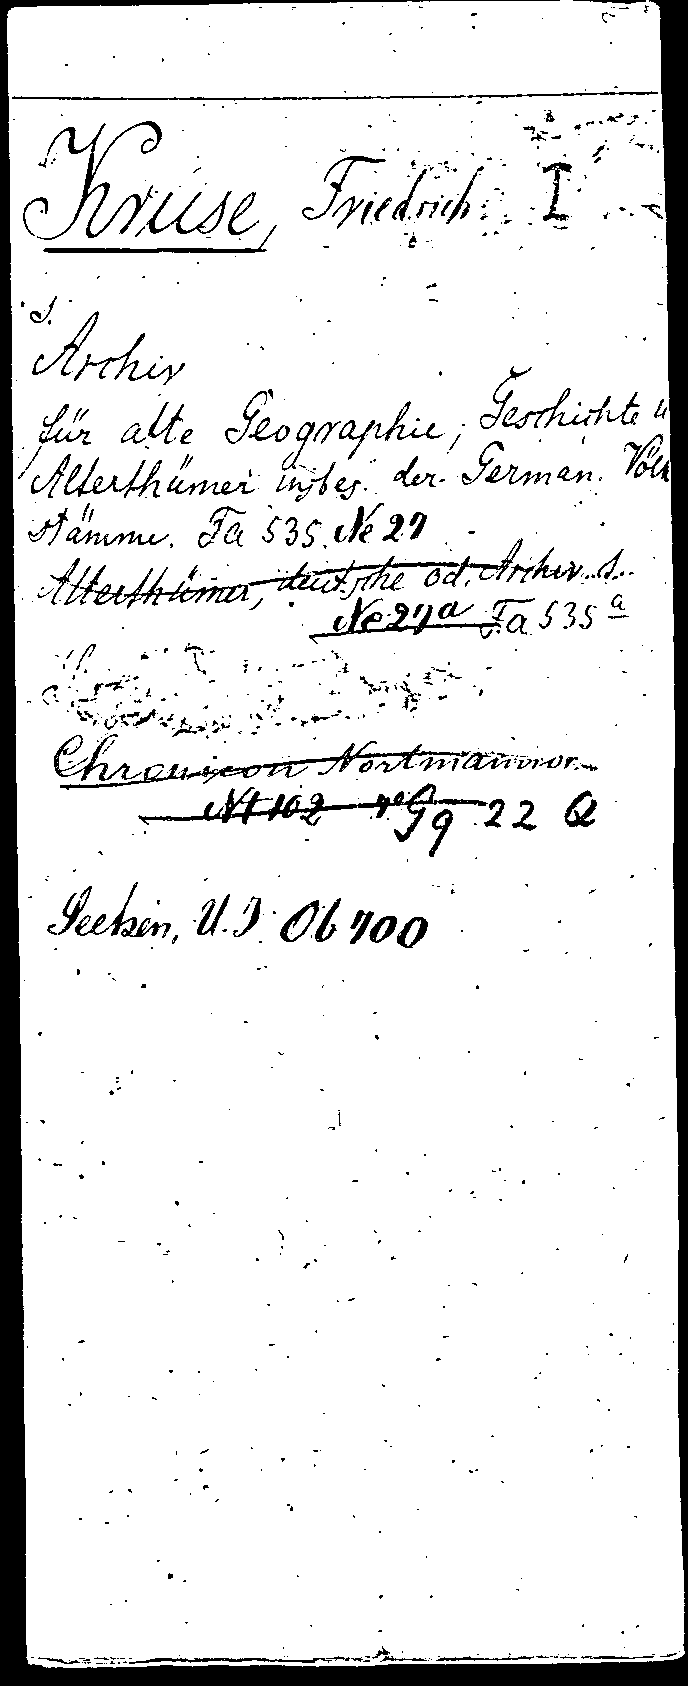 Kruse, Friedrich I
s.
Archiv
für alte Geographie, Geschichte u
Alterthümer insbes. der German. Völk
stämme. Fa 535. Ne 27
Alterthümer, deutsche od. Archiv s.
Ne 27a Fa 535 a
Chronicon Nortmannor.
Nt 102 4° Gq 22 Q
Seetzen, U. J. Ob 700